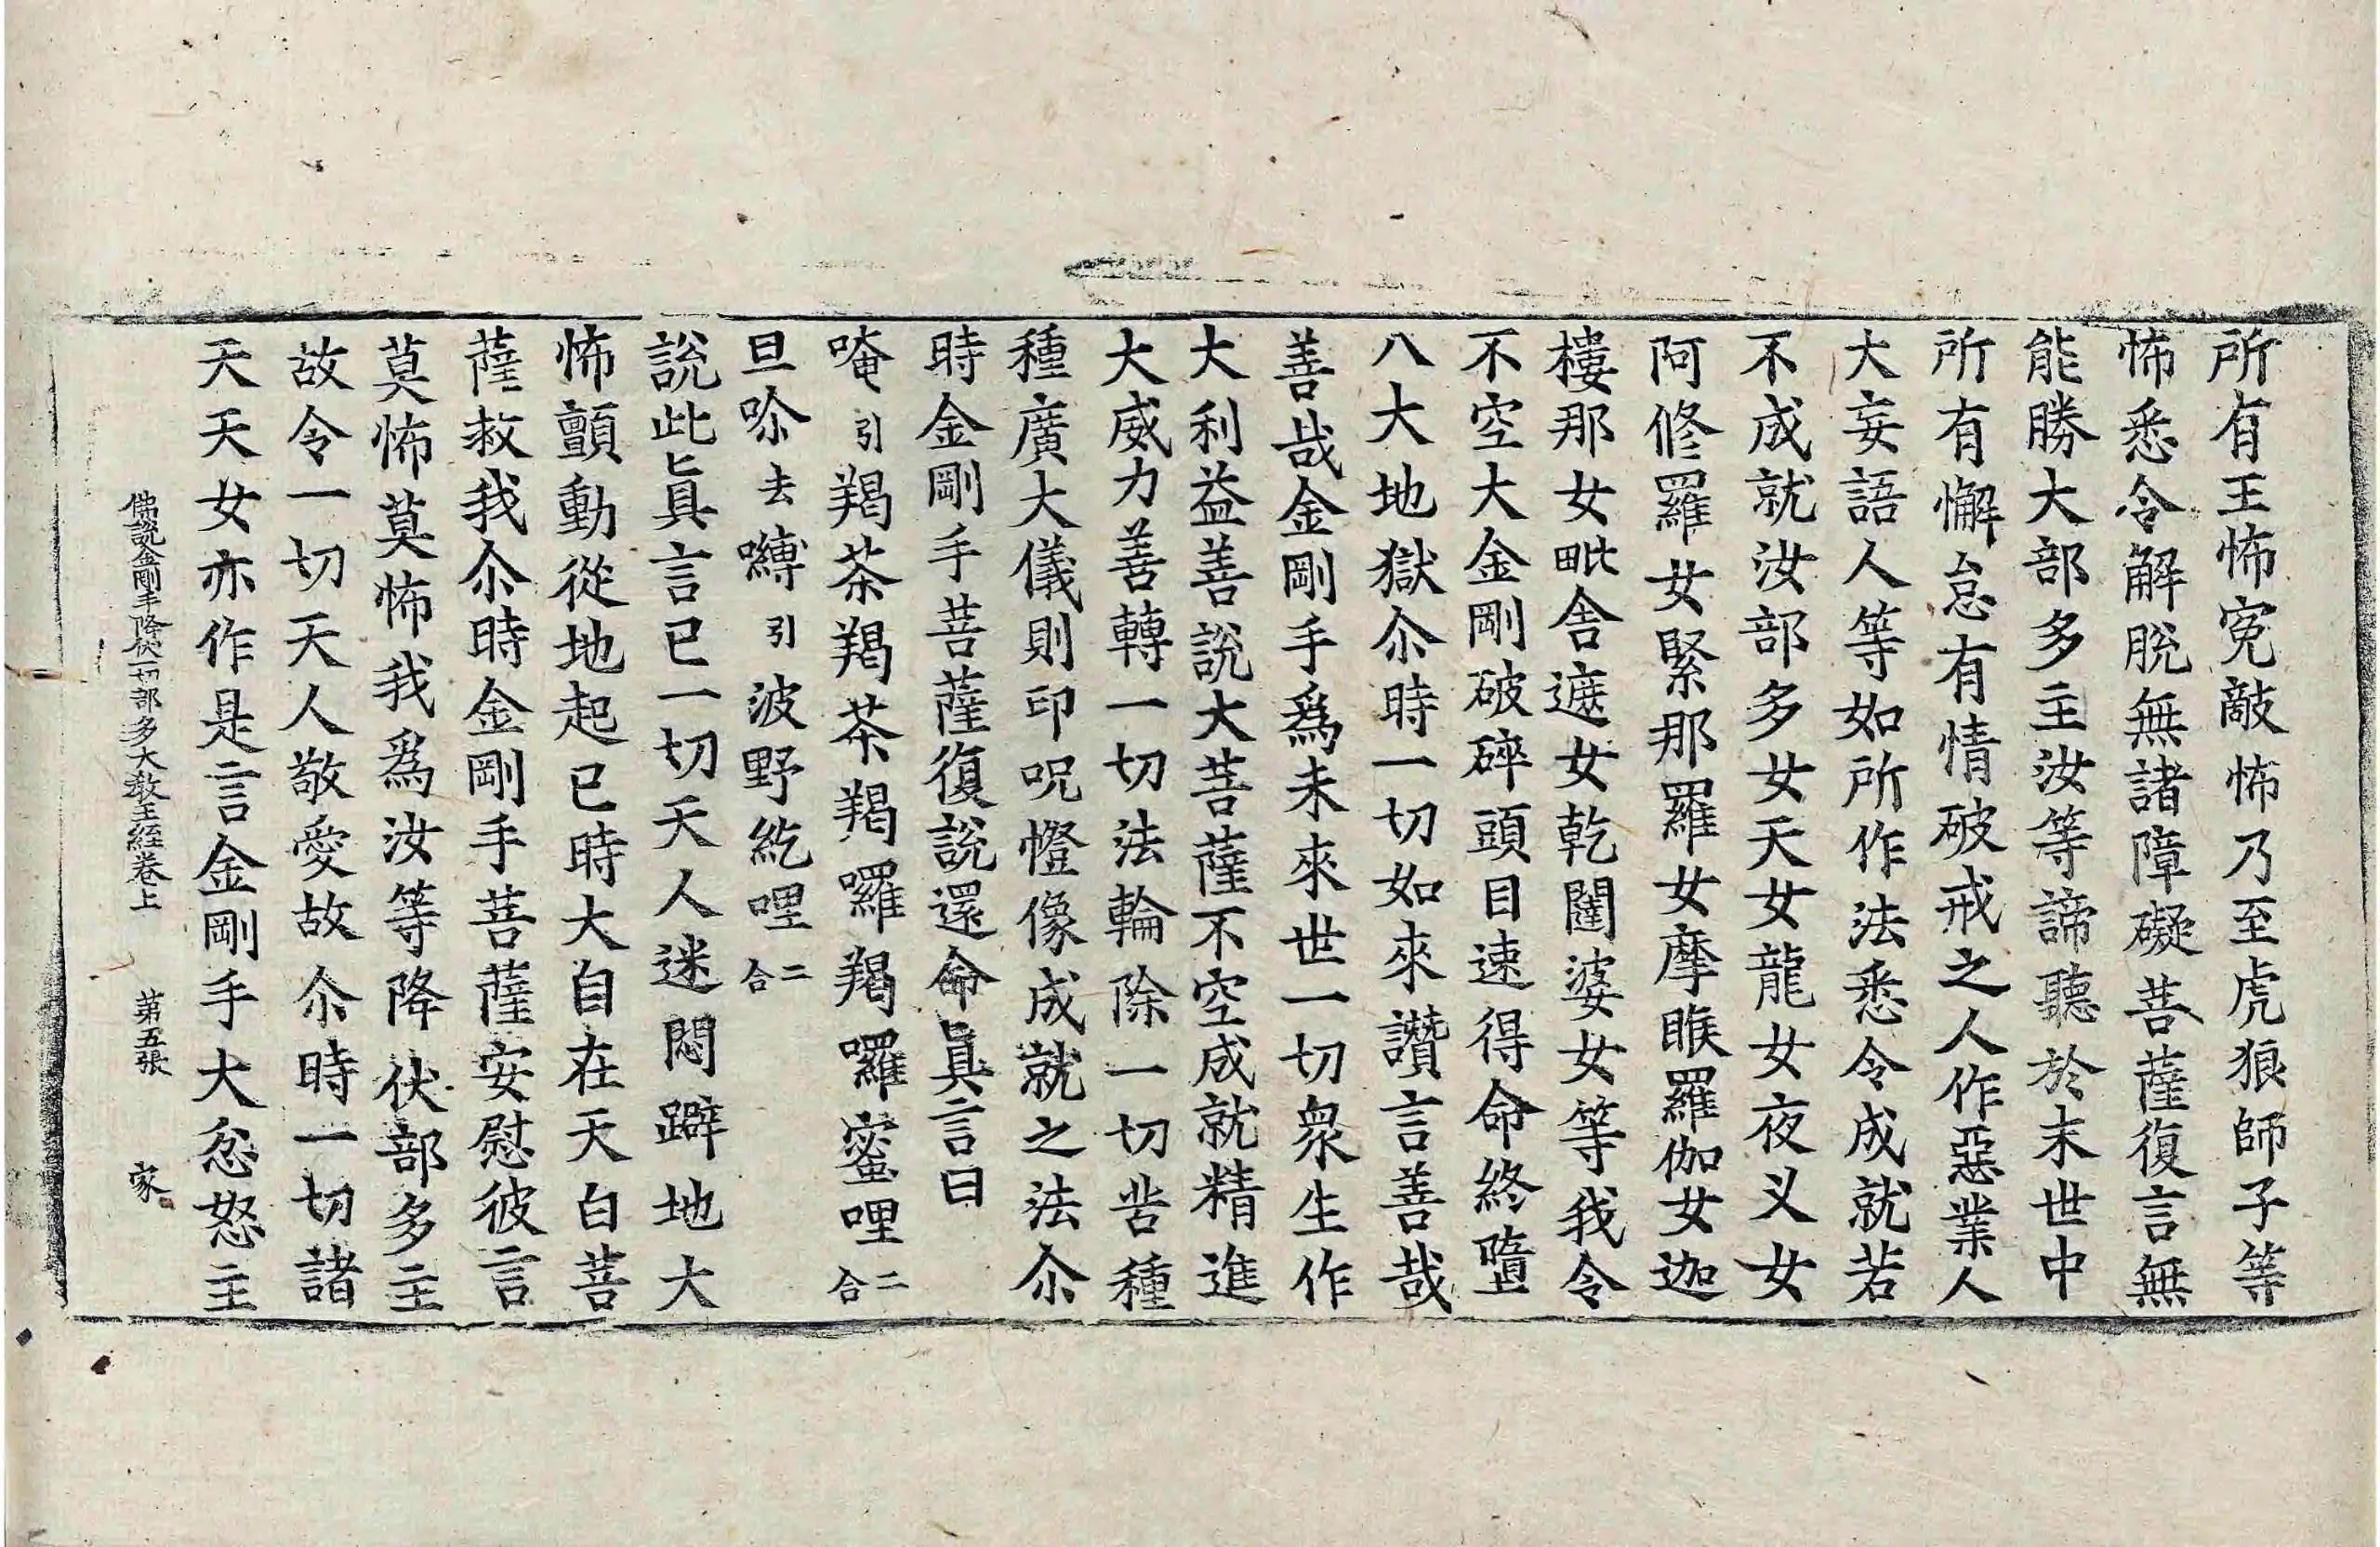 所有王怖寃敵怖乃至虎狼師子等
怖悉令解脫無諸障礙菩薩復言無
能勝大部多主汝等諦聽於末世中
所有懈怠有情破戒之人作惡業人
大妄語人等如所作法悉令成就若
不成就汝部多女天女龍女夜叉女
阿修羅女緊那羅女摩睺羅伽女迦
樓那女毗舍遮女乾闥婆女等我令
不空大金剛破碎頭目速得命終墮
八大地獄尒時一切如來讚言善哉
善哉金剛手爲未來世一切衆生作
大利益善說大菩薩不空成就精進
大威力善轉一切法輪除一切苦種
種廣大儀則印呪㡧像成就之法尒
時金剛手菩薩復說還命眞言曰
唵引羯茶羯茶羯囉羯囉蜜哩二合
旦㖮去嚩引波野紇哩二合
說此眞言已一切天人迷悶躃地大
怖顫動從地起已時大自在天白菩
薩救我尒時金剛手菩薩安慰彼言
莫怖莫怖我爲汝等降伏部多主
故令一切天人敬愛故尒時一切諸
天天女亦作是言金剛手大忿怒主
佛說金剛手降伏一切部多大教王經卷上 第五張 家